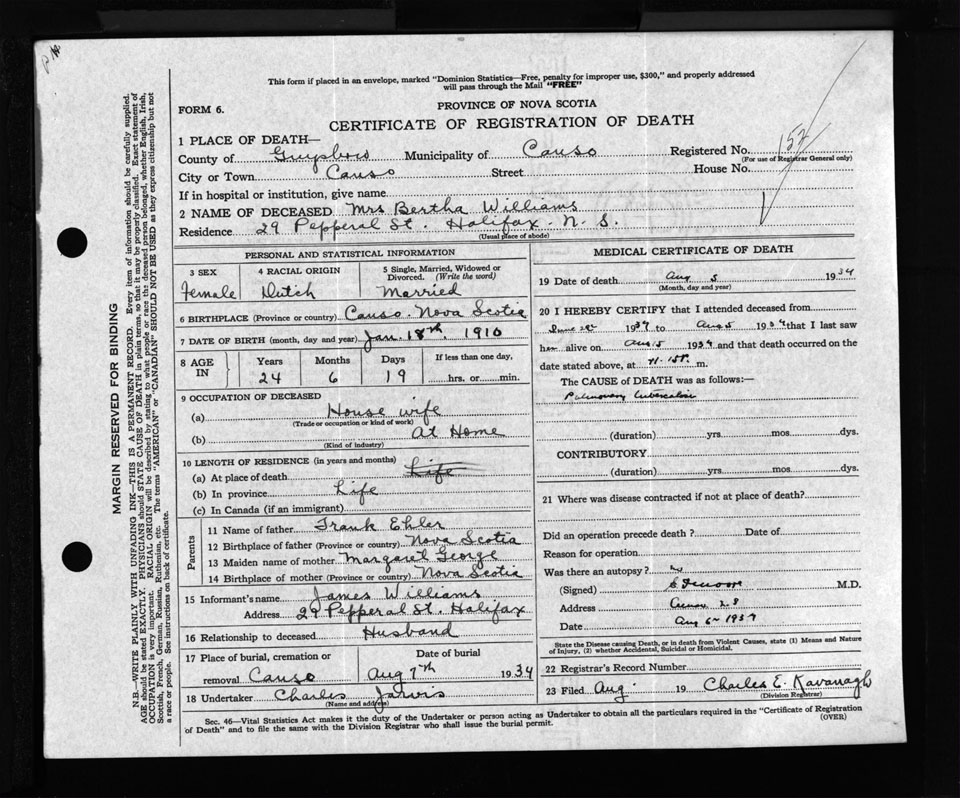 This form if placed in an envelope, marked "Dominion Statistics—Free, penalty for improper use, $300," and properly addressed
will pass through the Mail "FREE"
FORM 6.
PROVINCE OF NOVA SCOTIA
CERTIFICATE OF REGISTRATION OF DEATH
152
1 PLACE OF DEATH—
County of Guysboro Municipality of Canso Registered No.
(For use of Registrar General only)
City or Town Canso Street House No.
If in hospital or institution, give name
2 NAME OF DECEASED Mrs Bertha Williams
Residence 29 Pepperal St. Halifax N. S.
(Usual place of abode)
PERSONAL AND STATISTICAL INFORMATION
3 SEX 4 RACIAL ORIGIN 5 Single, Married, Widowed or Divorced. (Write the word)
Female Dutch Married
6 BIRTHPLACE (Province or country) Canso. Nova Scotia
7 DATE OF BIRTH (month, day and year) Jan. 18th. 1910
8 AGE IN Years Months Days If less than one day,
24 6 19 hrs. or min.
9 OCCUPATION OF DECEASED
(a) House wife
(Trade or occupation or kind of work)
(b) At Home
(Kind of industry)
10 LENGTH OF RESIDENCE (in years and months)
(a) At place of death Life
(b) In province Life
(c) In Canada (if an immigrant)
Parents
11 Name of father Frank Ehler
12 Birthplace of father (Province or country) Nova Scotia
13 Maiden name of mother Margaret George
14 Birthplace of mother (Province or country) Nova Scotia
15 Informant's name James Williams
Address 29 Pepperal St. Halifax
16 Relationship to deceased Husband
17 Place of burial, cremation or removal Canso
Date of burial Aug 7th 1934
18 Undertaker Charles Jarvis
(Name and address)
MEDICAL CERTIFICATE OF DEATH
19 Date of death Aug 5 1934
(Month, day and year)
20 I HEREBY CERTIFY that I attended deceased from
June 1934 to Aug 5 1934 that I last saw
her alive on Aug 5 1934 and that death occurred on the
date stated above, at m.
The CAUSE OF DEATH was as follows:—
Pulmonary tuberculosis
(duration) yrs. mos. dys.
CONTRIBUTORY
(duration) yrs. mos. dys.
21 Where was disease contracted if not at place of death?
Did an operation precede death? Date of
Reason for operation
Was there an autopsy?
(Signed) M.D.
Address
Date Aug 6 1934
State the Disease causing Death, or in death from Violent Causes, state (1) Means and Nature
of Injury, (2) whether Accidental, Suicidal or Homicidal.
22 Registrar's Record Number
23 Filed Aug 19 Charles E. Kavanagh
(Division Registrar)
Sec. 46—Vital Statistics Act makes it the duty of the Undertaker or person acting as Undertaker to obtain all the particulars required in the "Certificate of Registration
of Death" and to file the same with the Division Registrar who shall issue the burial permit.
(OVER)
MARGIN RESERVED FOR BINDING
N.B.—WRITE PLAINLY WITH UNFADING INK—THIS IS A PERMANENT RECORD. Every item of information should be carefully supplied.
AGE should be stated EXACTLY. PHYSICIANS should STATE CAUSE OF DEATH in plain terms, so that it may be properly classified. Exact statement of
OCCUPATION is very important. RACIAL ORIGIN will be described by stating to what people or race the deceased person belonged, whether English, Irish,
Scottish, French, German, Russian, Ruthenian, etc. The terms "AMERICAN" or "CANADIAN" SHOULD NOT BE USED as they express citizenship but not
a race or people. See instructions on back of certificate.